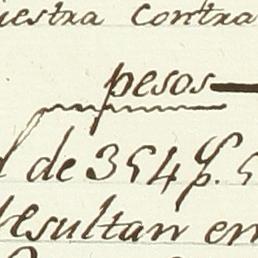 uestra contra
pesos
l de 3544 p. s
Resultan en